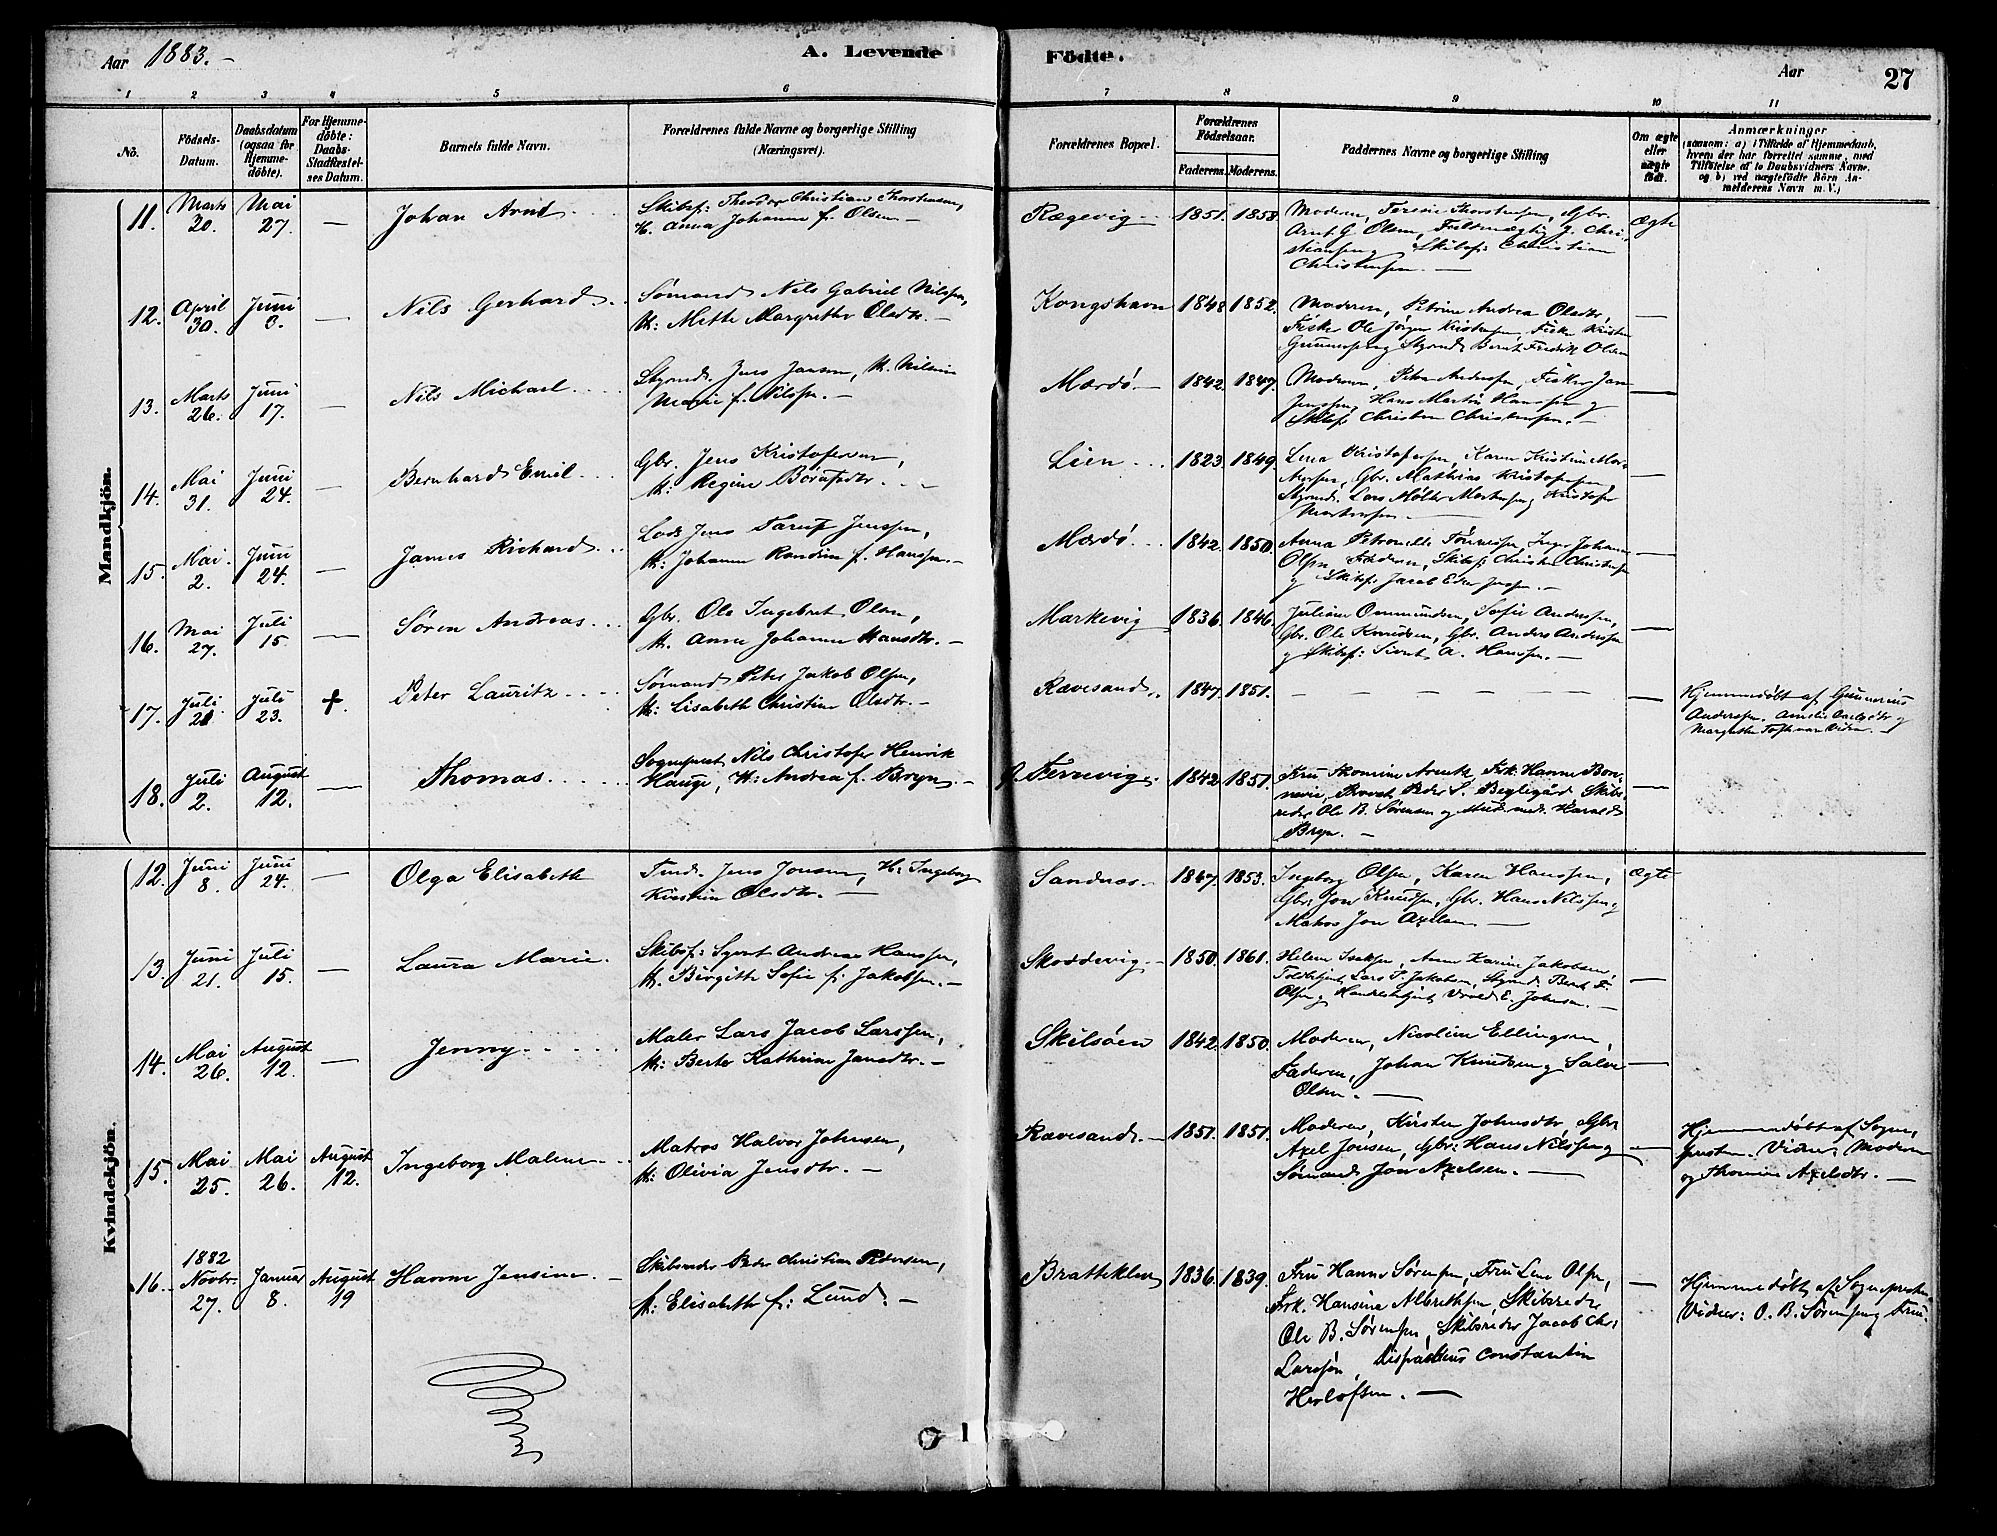 Aar 1883.-
A. Levende
Födte.
Aar
27
1 2 3 4 5 6 7 8 9 10 11
No.
Födsels-Datum.
Daabsdatum (ogsaa for Hjemmedöbte).
For Hjemmedöbte: Daabs-Stadfæstelses Datum.
Barnets fulde Navn.
Forældrenes fulde Navne og borgerlige Stilling (Næringsvei).
Forældrenes Bopæl.
Forældrenes Födselsaar.
Faderens. Moderens.
Faddernes Navne og borgerlige Stilling
Om ægte eller uægte födt.
Anmærkninger
(saasom: a) i Tilfælde af Hjemmedaab,
hvem der har forrettet samme, med
Tilföielse af to Daabsvidners Navne,
og b) ved uægtefödte Börn Anmelderens Navn m. V.)
Mandkjön.
11. Marts 20. Mai 27. — Johan Arnt
Skibsf: Theodor Christian Thorstensen,
H. Anna Johanne f. Olsen —
Rægevig 1851. 1858.
Moderen, Teresie Thorstensen, Gbr.
Arnt G. Olsen, Fuldmægtig J. Christiansen Skibsf: Christian
Christensen. —
Ægte
12. April 30. Juni 3. — Nils Gerhard
Sømand Nils Gabriel Nilssen,
H: Mette Margrethe Olsdtr. —
Kongshavn 1848 1852.
Moderen, Petrine Andrea Olsdtr,
Fisker Ole Jörgen Kristensen, Fisker Kristen
Gunnersen og Styrmd. Bernt Fredrik Olsen
—
13. Marts 26. Juni 17. — Nils Michael
Styrmd. Jens Jansen, H.
Marie f. Nilssen. —
Mærdö. — 1842. 1847.
Moderen, Andersen, Fisker Jan
Jenssen, Hans Martin Hanssen og
Skibsf: Christen Christensen. —
—
14. Mai 31. Juni 24. — Bernhard Emil
Gbr. Jens Kristofersen,
H: Regine Börufsdtr.
Lien 1823. 1849.
Lena Kristofersen, Karen Kristine Mortensen, Gbr. Mathias Kristofersen,
Styrmd. Lars Möller Mortensen, Kristofer
Mortensen —
—
15. Mai 2. Juni 24. — James Richard
Lods Jens Tarup Jenssen,
H: Johanne Randine f. Hanssen. —
Mærdö 1842. 1850.
Anna Petronelle Tönnesen, Inger Johanne
Olsen, Faderen, Skibsf: Christen Christensen
og Skibsf: Jacob Jenssen. —
—
16. Mai 27. Juli 15. — Søren Andreas
Gbr. Ole Ingebret Olsen,
H. Anne Johanne Hansdtr. —
Markevig 1836. 1846.
Juliane Ommundsen, Sofie Anderssen,
Gbr. Ole Knudsen, Gbr. Anders Anderssen
og Skibsf: Sivert A. Hanssen. —
—
17. Juli 21 Juli 23. +. Peter Lauritz
Sømand Peter Jakob Olsen,
H: Lisabeth Christine Olsdtr. —
Rævesand. 1847. 1851. — — — — —
Hjemmedöbt af Gunnerius
Anderssen. Amelie og
Margrethe Vidner. —
18. Juli 2. August 12. — Thomas
Sognepræst Nils Christofer Henrik
Hauge, H: Andrea f. Bryn. —
Færvevig. 1842 1851.
Fru Thomine Arentz, Frk. Hanne Bonnevie, Provst Peder S. Skibsreder Ole B. Sørensen og Harald
Bryn. —
—
Kvindekjön.
12. Juni 8. Juni 24. — Olga Elisabeth
Tmd. Jens Jonsen, H: Ingeborg
Kirstine Olsdtr. —
Sandnæs. 1847. 1853.
Ingeborg Olsen, Karen Hanssen,
Gbr. Jon Knudsen, Gbr. Hans Nilssen og
Matros Jon Axelsen —
Ægte
13. Juni 21. Juli 15. — Laura Marie.
Skibsf: Syvert Andreas Hanssen,
H. Birgitte Sofie f. Jakobsen. —
Skoddevig. 1850. 1861.
Helene Isaksen, Anne Karine Jakobsen,
Toldbetjent Lars T. Jakobsen, Styrmd. Bernt F.
Olsen og Handelsbetjent E. Johnsen. —
—
14. Mai 26. August 12. — Jenny
Maler Lars Jacob Larssen,
H: Berte Kathrine Jansdtr. —
Skilsöen 1842. 1850.
Moderen, Nicoline Ellingsen,
Faderen, Johan Knudsen og Salve
Olsen. —
—
15. Mai 25. Mai 26. August 12. Ingeborg Malene
Matros Halvor Johnsen,
H: Olivia Jensdtr. —
Rævesand. — 1851. 1851.
Moderen, Kirsten Johnsdtr, Gbr.
Axel Jonsen, Gbr: Hans Nilssen og
Sømand Jon Axelsen. —
—
Hjemmedöbt af Sognepresten. Vidner: Moderen
og Thomine Axelsdtr. —
16. 1882 Novbr. 27. Januar 8. August 19 Hanne Jensine. —
Skibsreder Peder Christian Pedersen,
H: Elisabeth f: Lund. —
Bratteklev 1836. 1839.
Fru Hanne Sørensen, Fru Lene Olsen,
Frk. Hansine Albrethsen, Skibsreder
Ole B. Sørensen, Skibsreder Jacob Chr.
Larssön, Dispacheur Constantin
Herlofsen. —
—
Hjemmedöbt af Sognepresten
Vidner: O. B. Sørensen og Frue.